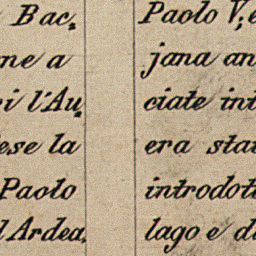 Bac,
ne a
i l'Au,
ese la
Paolo
Ardea,
Paolo V; e
jana an
ciate int
era stat
introdott
lago e d